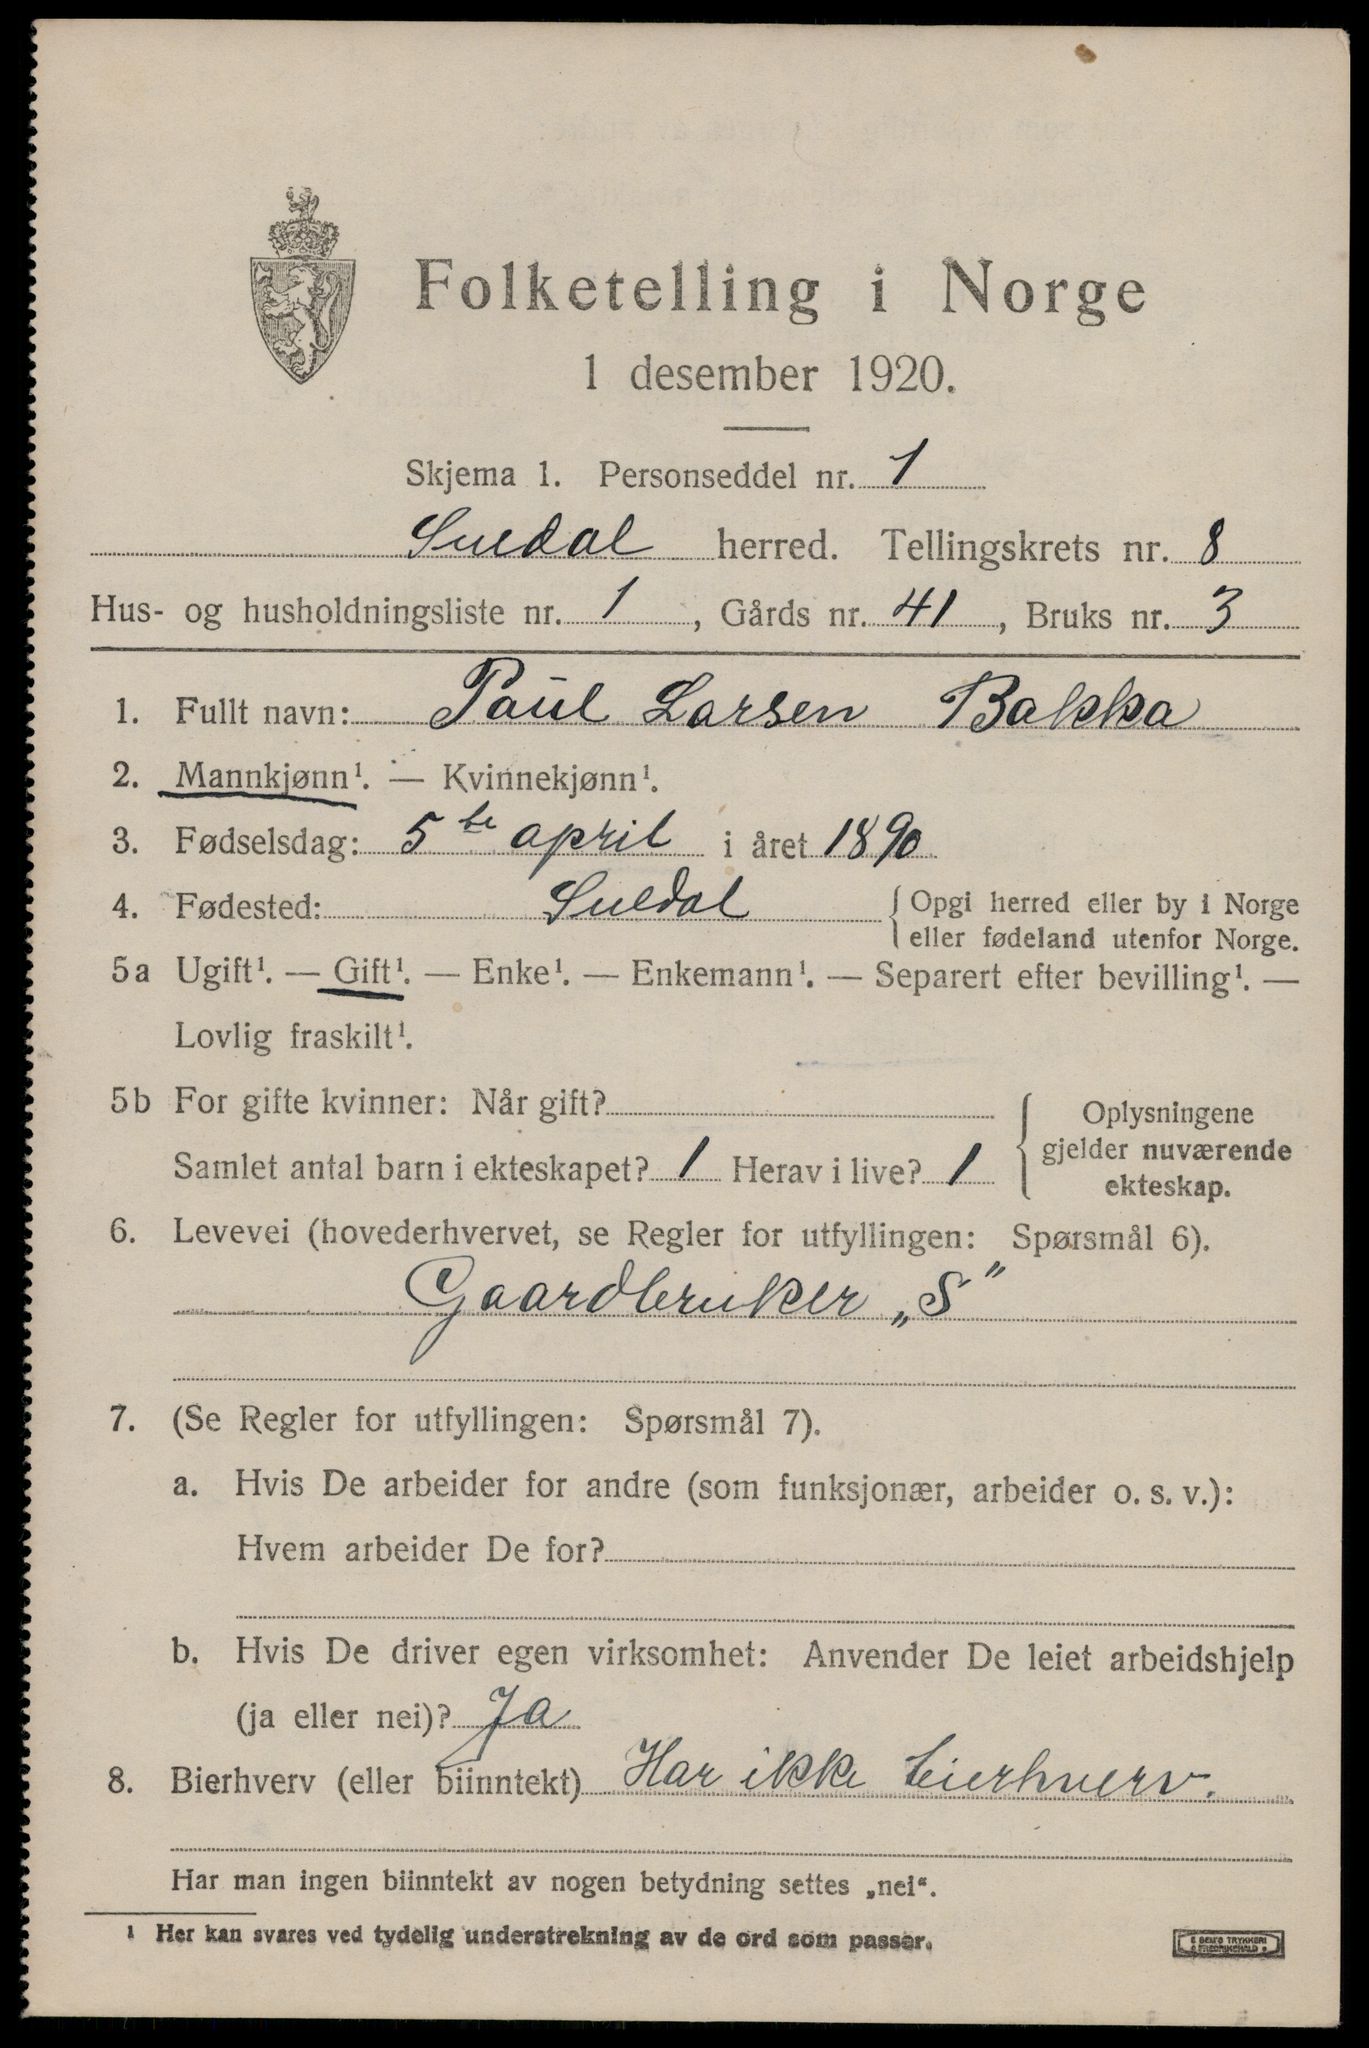 Folketelling i Norge
1 desember 1920.
Skjema 1. Personseddel nr. 1
Suldal herred. Tellingskrets nr. 8
Hus- og husholdningsliste nr. 1, Gårds nr. 41, Bruks nr. 3
1. Fullt navn: Paul Larsen Bakka
2. Mannkjønn¹. — Kvinnekjønn¹.
3. Fødselsdag: 5te april i året 1890
4. Fødested: Suldal { Opgi herred eller by i Norge
eller fødeland utenfor Norge.
5a Ugift¹. — Gift¹. — Enke¹. — Enkemann¹. — Separert efter bevilling¹. —
Lovlig fraskilt¹.
5b For gifte kvinner: Når gift?
Samlet antal barn i ekteskapet? 1 Herav i live? 1
Oplysningene
gjelder nuværende
ekteskap.
6. Levevei (hovederhvervet, se Regler for utfyllingen: Spørsmål 6).
Gaardbruker „S"
7. (Se Regler for utfyllingen: Spørsmål 7).
a. Hvis De arbeider for andre (som funksjonær, arbeider o. s. v.):
Hvem arbeider De for?
b. Hvis De driver egen virksomhet: Anvender De leiet arbeidshjelp
(ja eller nei)? Ja
8. Bierhverv (eller biinntekt) Har ikke bierhverv.
Har man ingen biinntekt av nogen betydning settes „nei".
¹ Her kan svares ved tydelig understrekning av de ord som passer.
E SEM'S TRYKKERI
FREDRIKSHALD